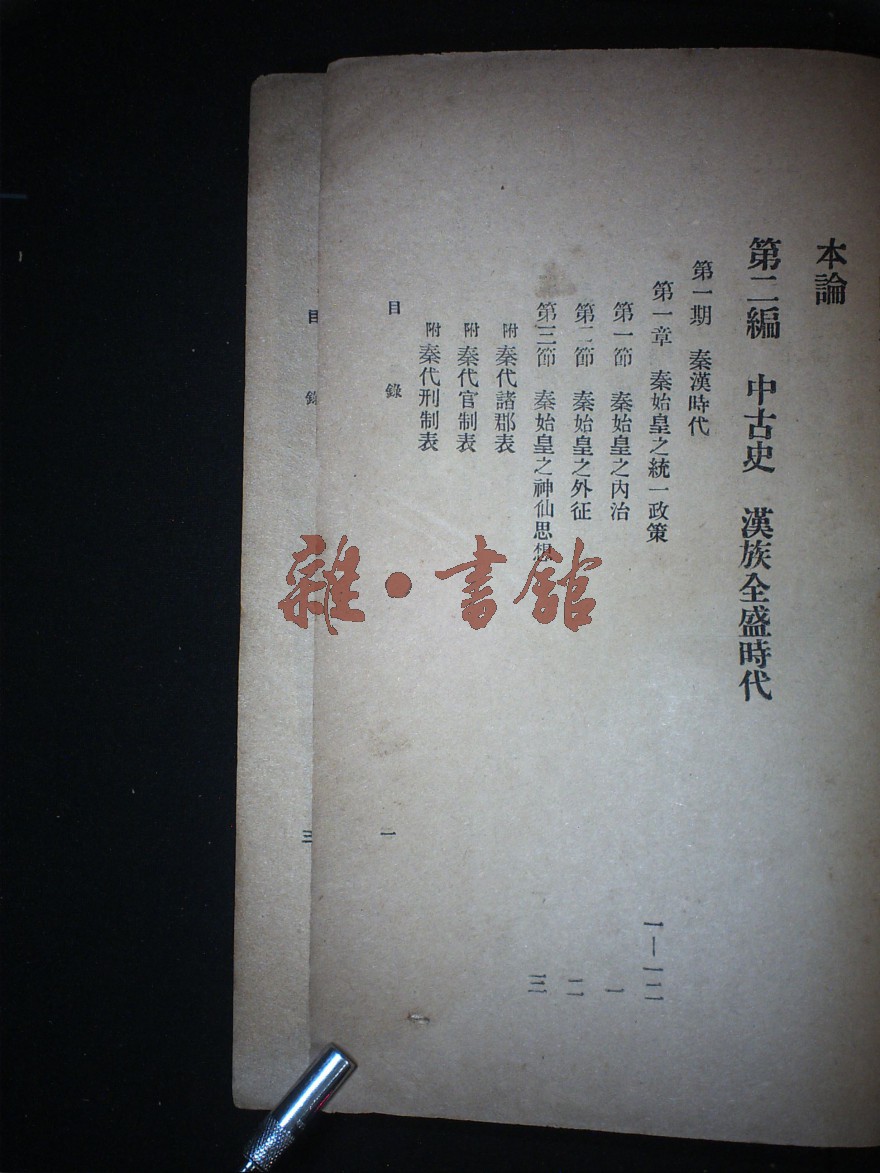 本論
第二編 中古史 漢族全盛時代
第一期 秦漢時代
第一章 秦始皇之統一政策 一—一二
第一節 秦始皇之內治 一
第二節 秦始皇之外征 二
第三節 秦始皇之神仙思想 三
附 秦代諸郡表
附 秦代官制表
附 秦代刑制表
目錄 一
目錄 三
雜·書館